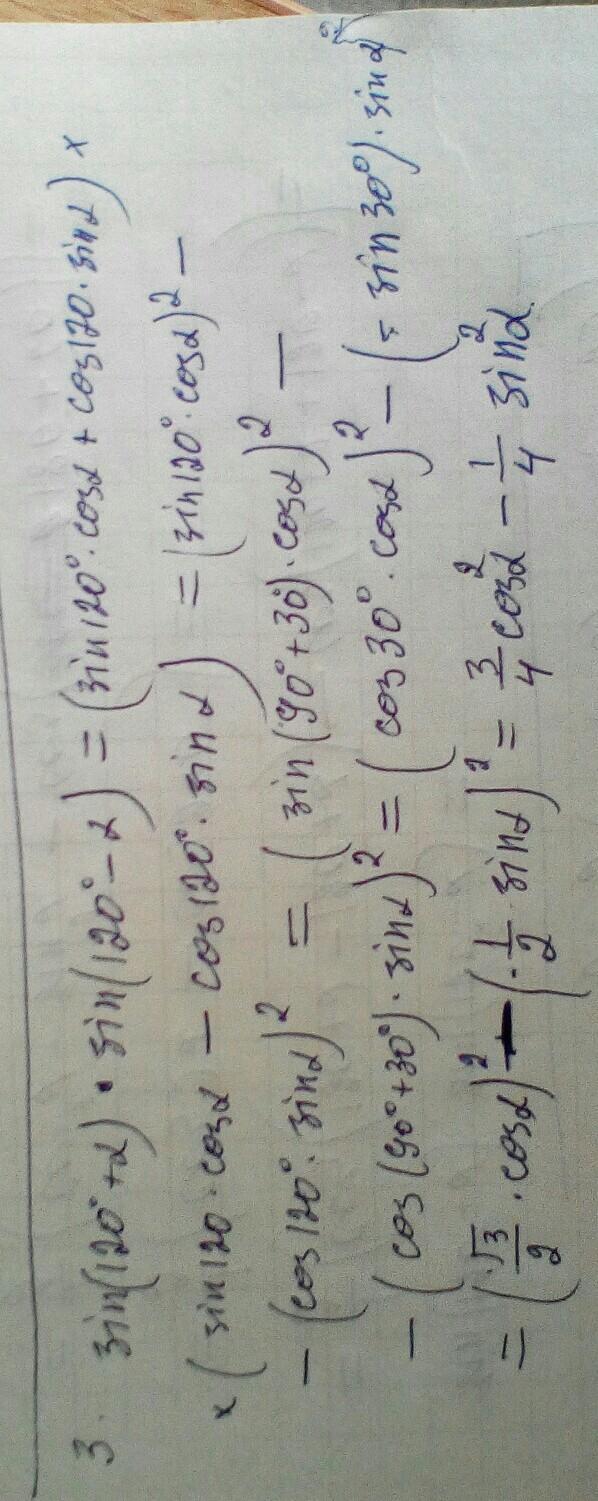 3. sin(120°+α) · sin(120°-α) = (sin120°·cosα + cos120·sinα) ×
× (sin120·cosα - cos120°·sinα) = (sin120°·cosα)² -
- (cos120°·sinα)² = (sin(90°+30°)·cosα)² -
- (cos(90°+30°)·sinα)² = (cos30°·cosα)² - (-sin30°)·sinα)²
= (√3/2 ·cosα)² - (-1/2 sinα)² = 3/4 cos²α - 1/4 sin²α